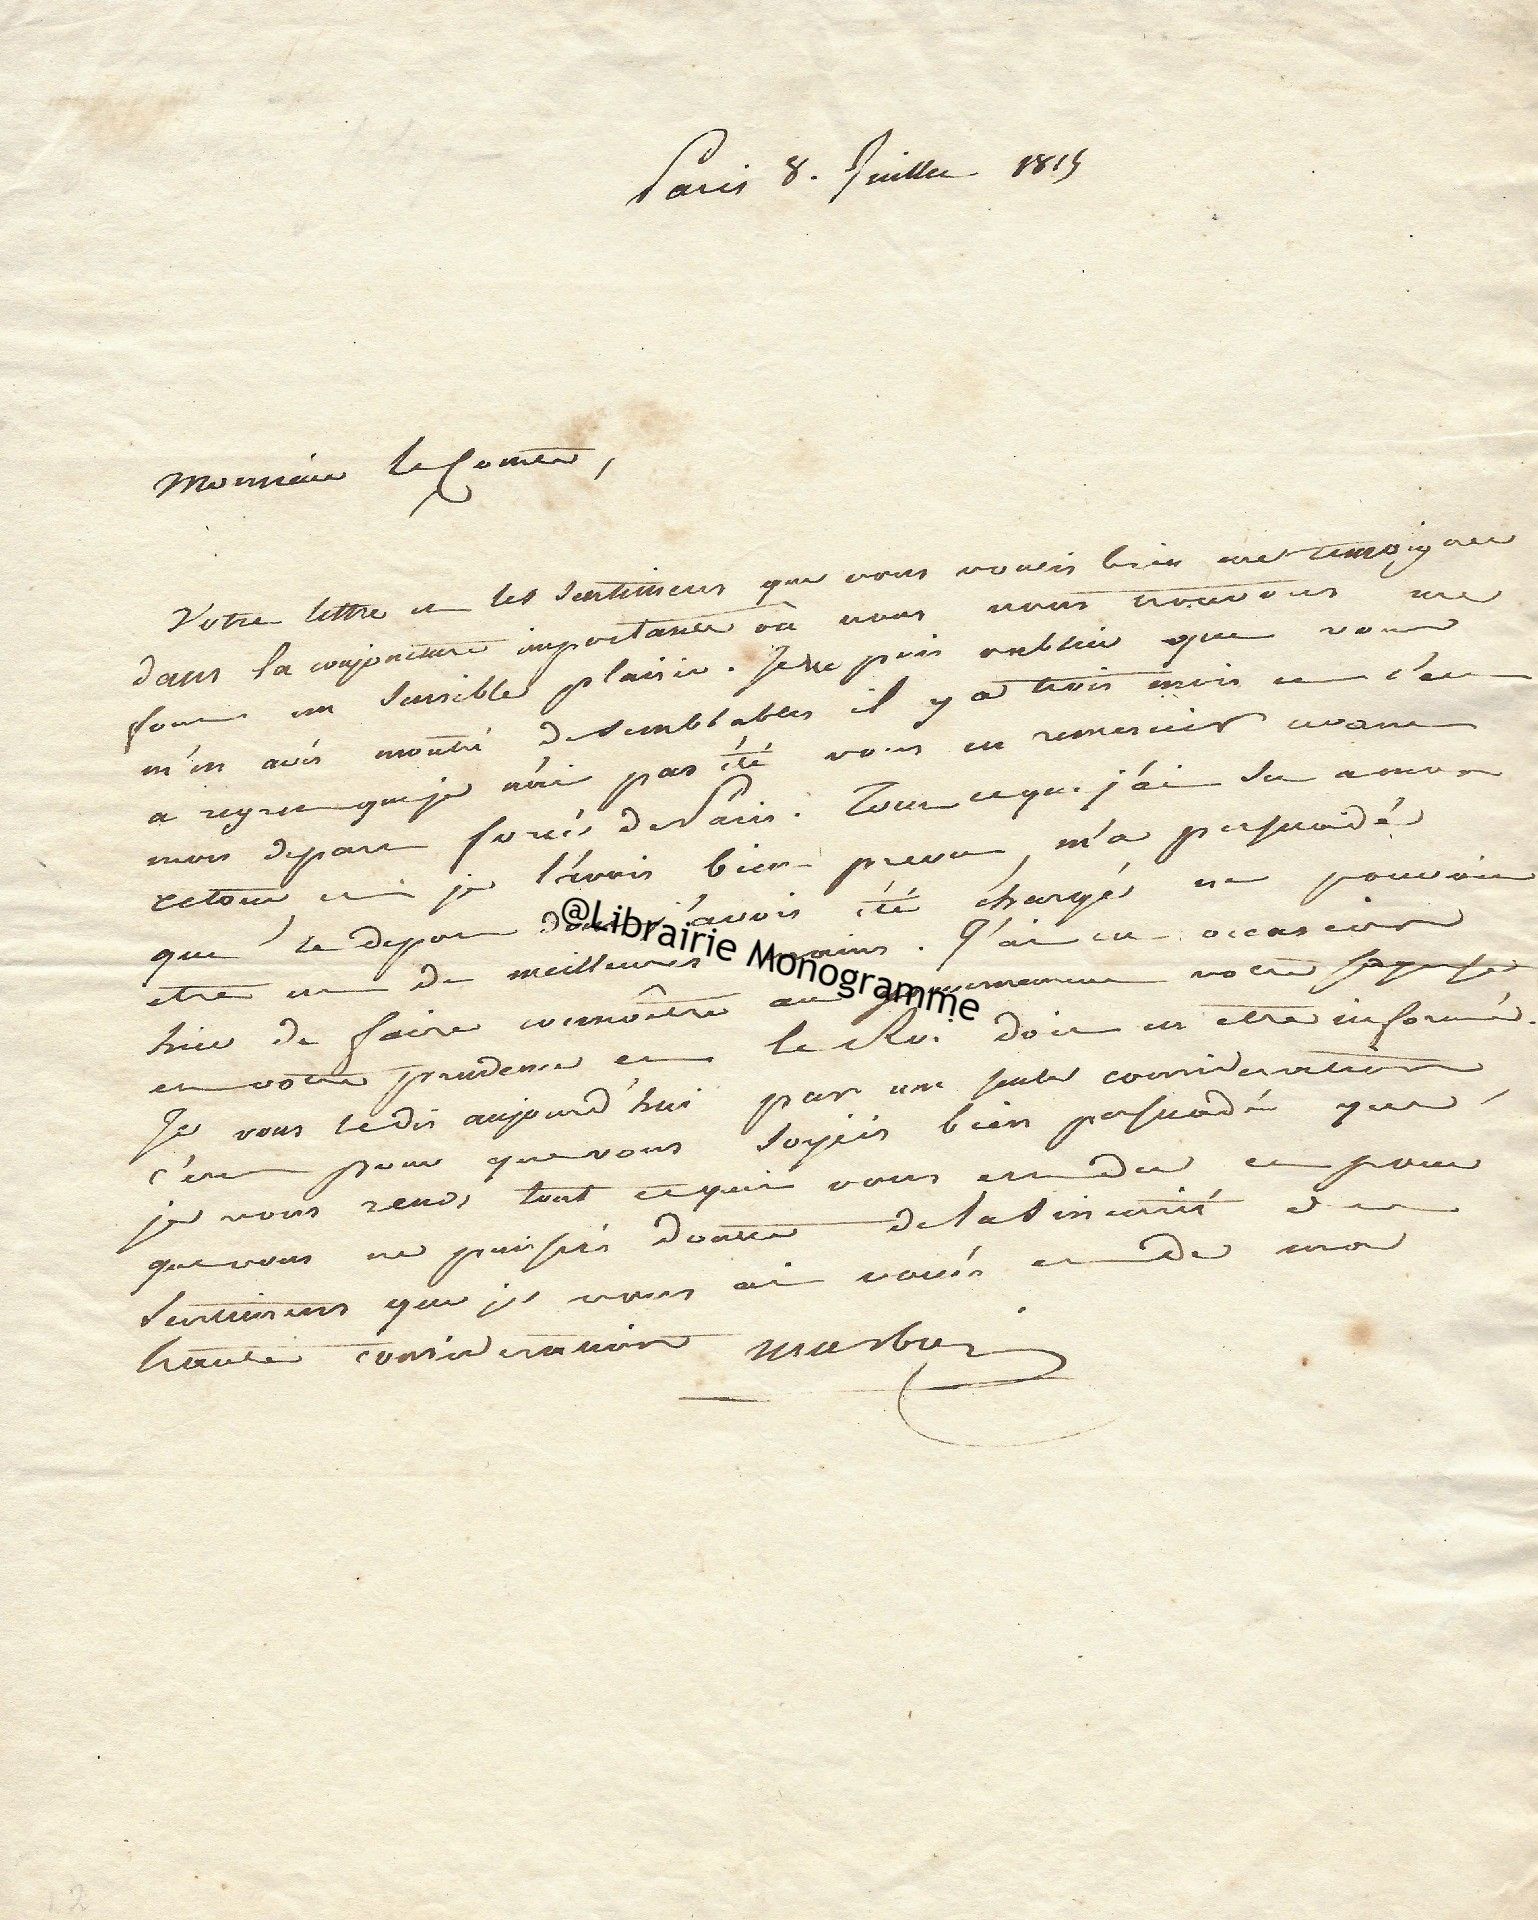 Paris 8. Juillet 1815
Monsieur le Comte,
Votre lettre et les sentimens que vous voulés bien me temoigner
dans la conjoncture importante où nous nous trouvons me
font un sensible plaisir. Je ne puis oublier que vous
m'en avés montré de semblables il y a trois mois et c'est
a regret que je n'ai pas été vous en remercier avant
mon depart forcé de Paris. Tout ce que j'ai su a mon
retour et je l'avois bien prevu, m'a persuadé
que le depot dont j'avois été chargé ne pouvoit
etre en de meilleures mains. J'ai eu occasion
hier de faire connoître au gouvernement votre sagesse
et votre prudence et le Roi doit en etre informé.
Je vous le dis aujourd'hui par une seule consideration
c'est pour que vous soyiés bien persuadé que
je vous rends tout ce qui vous est du et pour
que vous ne puissiés douter de la sincerité des
sentimens que je vous ai voués et de ma
haute consideration Marbois
@Librairie Monogramme